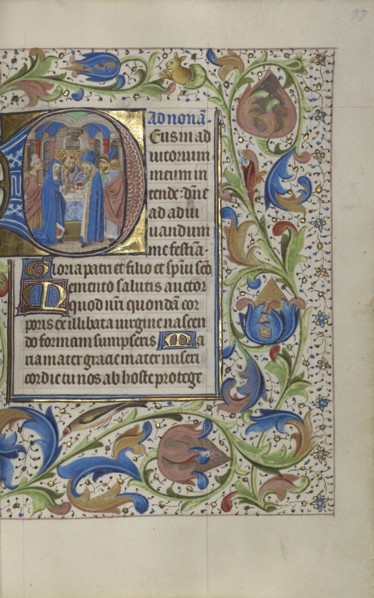 97
Ad nonā.
Deus in ad
iutorium
meum in
tende: dn̄e
ad adiu
uandum
me festīa.
Gloria patri et filio et sp̄iu scō
Memento salutis auctor
quod nr̄i quondā cor
poris ex illibata uirgine nascen
do formam sumpseris Ma
ria mater gracie mater miseri
cordie tu nos ab hoste protege